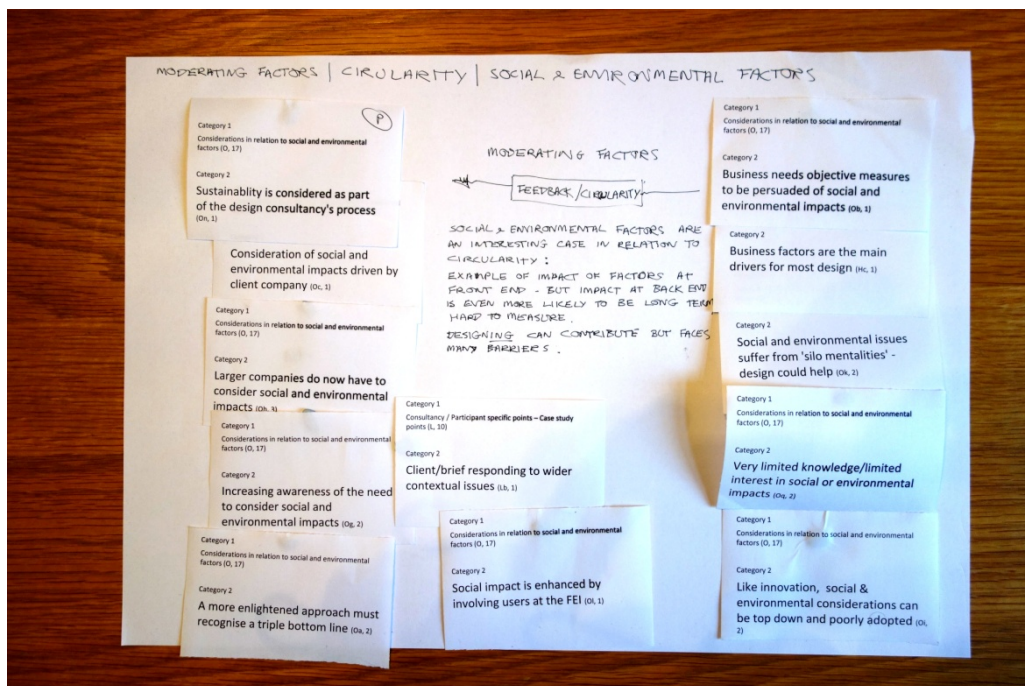 MODERATING FACTORS | CIRULARITY | SOCIAL & ENVIRONMENTAL FACTORS
P
Category 1
Considerations in relation to social and environmental
factors (O, 17)
Category 2
Sustainablity is considered as part
of the design consultancy's process
(On, 1)
Consideration of social and
environmental impacts driven by
client company (Oc, 1)
Category 1
Considerations in relation to social and environmental
factors (O, 17)
Category 2
Larger companies do now have to
consider social and environmental
impacts (Oh, 3)
Category 1
Considerations in relation to social and environmental
factors (O, 17)
Category 2
Increasing awareness of the need
to consider social and
environmental impacts (Og, 2)
Category 1
Considerations in relation to social and environmental
factors (O, 17)
Category 2
A more enlightened approach must
recognise a triple bottom line (Oa, 2)
MODERATING FACTORS
FEEDBACK/CIRULARITY
SOCIAL & ENVIRONMENTAL FACTORS ARE
AN INTERESTING CASE IN RELATION TO
CIRCULARITY:
EXAMPLE OF IMPACT OF FACTORS AT
FRONT END - BUT IMPACT AT BACK END
IS EVEN MORE LIKELY TO BE LONG TERM
HARD TO MEASURE.
DESIGNING CAN CONTRIBUTE BUT FACES
MANY BARRIERS.
Category 1
Consultancy / Participant specific points – Case study
points (L, 10)
Category 2
Client/brief responding to wider
contextual issues (Lb, 1)
Category 1
Considerations in relation to social and environmental
factors (O, 17)
Category 2
Social impact is enhanced by
involving users at the FEI (Ol, 1)
Category 1
Considerations in relation to social and environmental
factors (O, 17)
Category 2
Business needs objective measures
to be persuaded of social and
environmental impacts (Ob, 1)
Category 2
Business factors are the main
drivers for most design (Hc, 1)
Category 2
Social and environmental issues
suffer from 'silo mentalities' -
design could help (Ok, 2)
Category 1
Considerations in relation to social and environmental
factors (O, 17)
Category 2
Very limited knowledge/limited
interest in social or environmental
impacts (Oq, 2)
Category 1
Considerations in relation to social and environmental
factors (O, 17)
Category 2
Like innovation, social &
environmental considerations can
be top down and poorly adopted (Oi,
2)